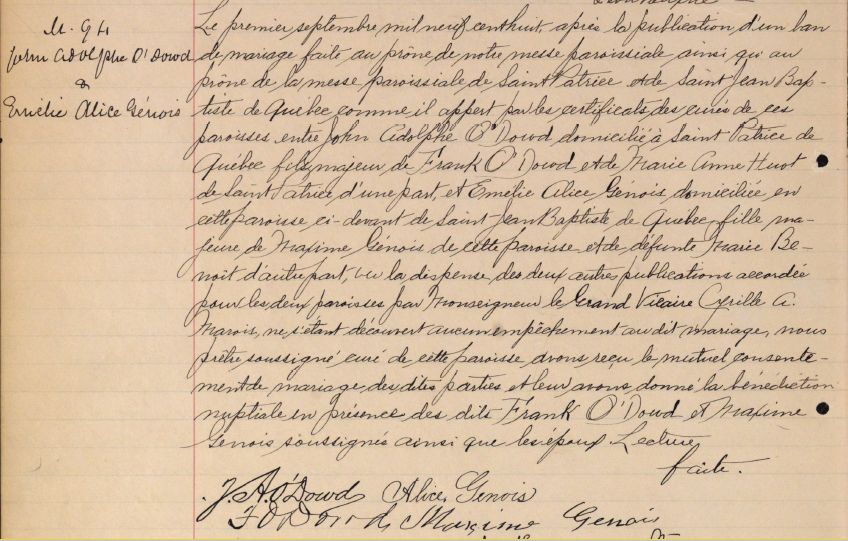 M. 94
John Adolphe O'Dowd
&
Emélie Alice Génois
Le premier septembre mil neuf cent huit, après la publication d'un ban
de mariage faite au prône de notre messe paroissiale ainsi qu'au
prône de la messe paroissiale de Saint Patrice et de Saint Jean Bap-
tiste de Québec comme il appert par les certificats des curés de ces
paroisses entre John Adolphe O'Dowd domicilié à Saint Patrice de
Québec fils majeur de Frank O'Dowd et de Marie Anne Huot
de Saint Patrice d'une part, et Emélie Alice Génois domiciliée en
cette paroisse ci-devant de Saint Jean Baptiste de Québec fille ma-
jeure de Maxime Génois de cette paroisse et de défunte Marie Be-
noit d'autre part, vu la dispense des deux autres publications accordée
pour les deux paroisses par Monseigneur le Grand Vicaire Cyrille A.
Marois, ne s'étant découvert aucun empêchement au dit mariage, nous
prêtre soussigné curé de cette paroisse avons reçu le mutuel consente-
ment de mariage des dites parties et leur avons donné la bénédiction
nuptiale en présence des dits Frank O'Dowd et Maxime
Genois soussignés ainsi que les époux Lecture
faite.
J. A. O'Dowd Alice Genois
F O Dowd Maxime Genois